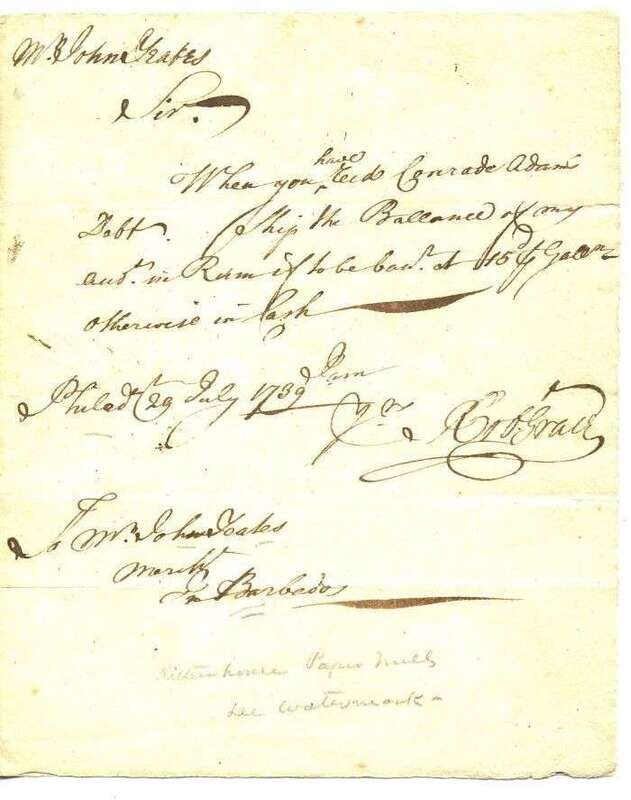 Mr. John Yeates
Sir.
When you have Recd Conrade Adams
Debt. Ship the Ballance of my
Acct. in Rum if to be had. at 15d ⅌ Gallon
otherwise in Cash
Philada. 29 July 1739 I am
Yrs Robt Grace
To Mr. John Yeates
Mercht
In Barbados
Rittenhouse Paper Mills
see watermark